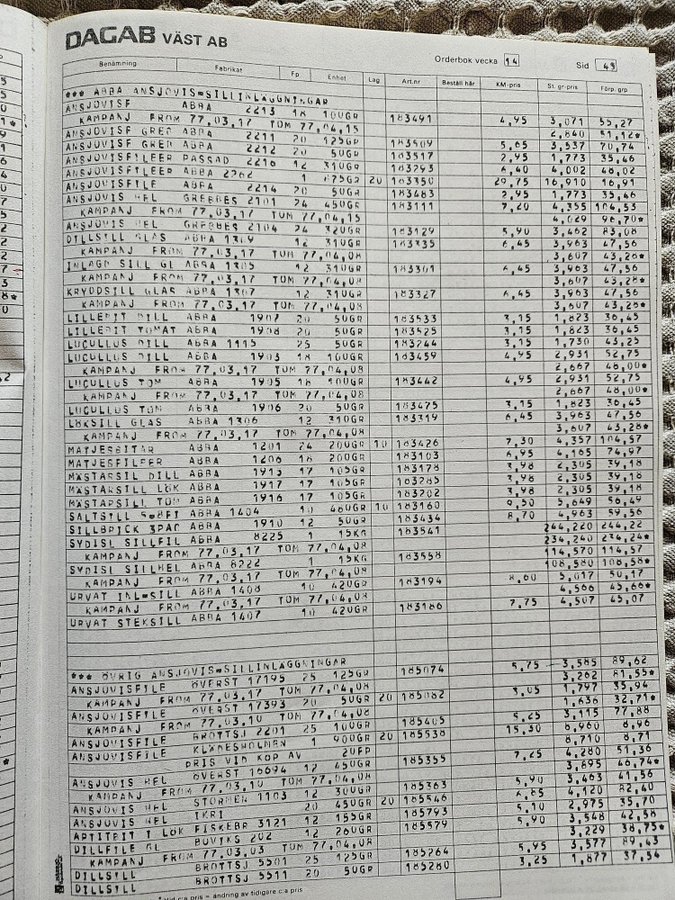 DAGAB VÄST AB
Orderbok vecka 14 Sid 43
Benämning Fabrikat Fp Enhet Lag Art.nr Beställ här KM-pris St. gr-pris Förp. grp
*** ABBA ANSJOVIS=SILLINLÄGGNINGAR
ANSJOVISF ABBA 2213 18 100GR 183491 4,95 3,071 55,27
KAMPANJ FROM 77.03.17 TOM 77.04.15 2,840 51,12*
ANSJOVISF GREB ABBA 2211 20 125GR 183509 5,65 3,537 70,74
ANSJOVISF GREB ABBA 2212 20 50GR 183517 2,95 1,773 35,46
ANSJOVISFILEER PASSAD 2210 12 310GR 183293 6,40 4,002 48,02
ANSJOVISFILEER ABBA 2262 1 675GR 20 183350 29,75 16,910 16,91
ANSJOVISFILE ABBA 2214 20 50GR 183483 2,95 1,773 35,46
ANSJOVIS HEL GREBBES 2101 24 450GR 183111 7,20 4,355 104,53
KAMPANJ FROM 77.03.17 TOM 77.04.15 4,029 96,70*
ANSJOVIS HEL GREBBES 2104 24 320GR 183129 5,90 3,462 83,08
DILLSILL GLAS ABBA 1309 12 310GR 183335 6,45 3,963 47,56
KAMPANJ FROM 77.03.17 TOM 77.04.08 3,607 43,28*
INLAGD SILL GL ABBA 1305 12 310GR 183301 6,45 3,963 47,56
KAMPANJ FROM 77.03.17 TOM 77.04.08 3,607 43,28*
KRYDDSILL GLAS ABBA 1307 12 310GR 183327 6,45 3,963 47,56
KAMPANJ FROM 77.03.17 TOM 77.04.08 3,607 43,28*
LILLEBIT DILL ABBA 1907 20 50GR 183533 3,15 1,823 36,45
LILLEBIT TOMAT ABBA 1908 20 50GR 183525 3,15 1,823 36,45
LUCULLUS DILL ABBA 1115 25 50GR 183244 3,15 1,730 43,25
LUCULLUS DILL ABBA 1903 18 100GR 183459 4,95 2,931 52,75
KAMPANJ FROM 77.03.17 TOM 77.04.08 2,667 48,00*
LUCULLUS TOM ABBA 1905 18 100GR 183442 4,95 2,931 52,75
KAMPANJ FROM 77.03.17 TOM 77.04.08 2,667 48,00*
LUCULLUS TOM ABBA 1906 20 50GR 183475 3,15 1,823 36,45
LÖKSILL GLAS ABBA 1306 12 310GR 183319 6,45 3,963 47,56
KAMPANJ FROM 77.03.17 TOM 77.04.08 3,607 43,28*
MATJESBITAR ABBA 1201 24 200GR 10 183426 7,30 4,357 104,57
MATJESFILEER ABBA 1206 18 200GR 183103 6,95 4,165 74,97
MÄSTARSIL DILL ABBA 1915 17 105GR 183178 3,98 2,305 39,18
MÄSTARSILL LÖK ABBA 1917 17 105GR 183285 3,98 2,305 39,18
MÄSTARSILL TOM ABBA 1916 17 105GR 183202 3,98 2,305 39,18
SALTSILL ABBA 1404 10 480GR 10 183160 9,50 5,649 56,49
SILLBRICK 3PAC ABBA 1910 12 50GR 183434 8,70 4,963 59,56
SYDISL SILLFIL ABBA 8225 1 15KG 183541 244,220 244,22
KAMPANJ FROM 77.03.17 TOM 77.04.08 234,240 234,24*
SYDISL SILLHEL ABBA 8222 1 15KG 183558 114,570 114,57
KAMPANJ FROM 77.03.17 TOM 77.04.08 108,580 108,58*
URVAT INL=SILL ABBA 1408 10 420GR 183194 8,60 5,017 50,17
KAMPANJ FROM 77.03.17 TOM 77.04.08 4,566 45,66*
URVAT STEKSILL ABBA 1407 10 420GR 183186 7,75 4,507 45,07
*** ÖVRIG ANSJOVIS=SILLINLÄGGNINGAR
ANSJOVISFILE ÖVERST 17195 25 125GR 185074 5,75 3,585 89,62
KAMPANJ FROM 77.03.17 TOM 77.04.08 3,262 81,55*
ANSJOVISFILE ÖVERST 17393 20 50GR 20 185082 3,05 1,797 35,94
KAMPANJ FROM 77.03.10 TOM 77.04.08 1,636 32,71*
ANSJOVISFILE BROTTSJ 2201 25 100GR 185405 5,25 3,115 77,88
ANSJOVISFILE KLÄDESHOLMEN 1 900GR 20 185538 15,30 8,960 8,96
PRIS VID KÖP AV 20FP 8,710 8,71
ANSJOVIS HEL ÖVERST 16694 12 450GR 185355 7,25 4,280 51,36
KAMPANJ FROM 77.03.17 TOM 77.04.08 3,895 46,74*
ANSJOVIS HEL STORMEN 1103 12 300GR 185363 5,90 3,463 41,56
ANSJOVIS HEL IKRI 20 450GR 20 185546 6,85 4,120 82,40
APTITBIT I LÖK FISKEBR 3121 12 155GR 185793 5,10 2,975 35,70
DILLFILE GL BOVIKS 202 12 260GR 185579 5,90 3,548 42,58
KAMPANJ FROM 77.03.03 TOM 77.04.08 3,229 38,75*
DILLSILL BROTTSJ 5501 25 125GR 185264 5,95 3,577 89,43
DILLSILL BROTTSJ 5511 20 50GR 185280 3,25 1,877 37,54
* vid c:a pris = ändring av tidigare c:a pris